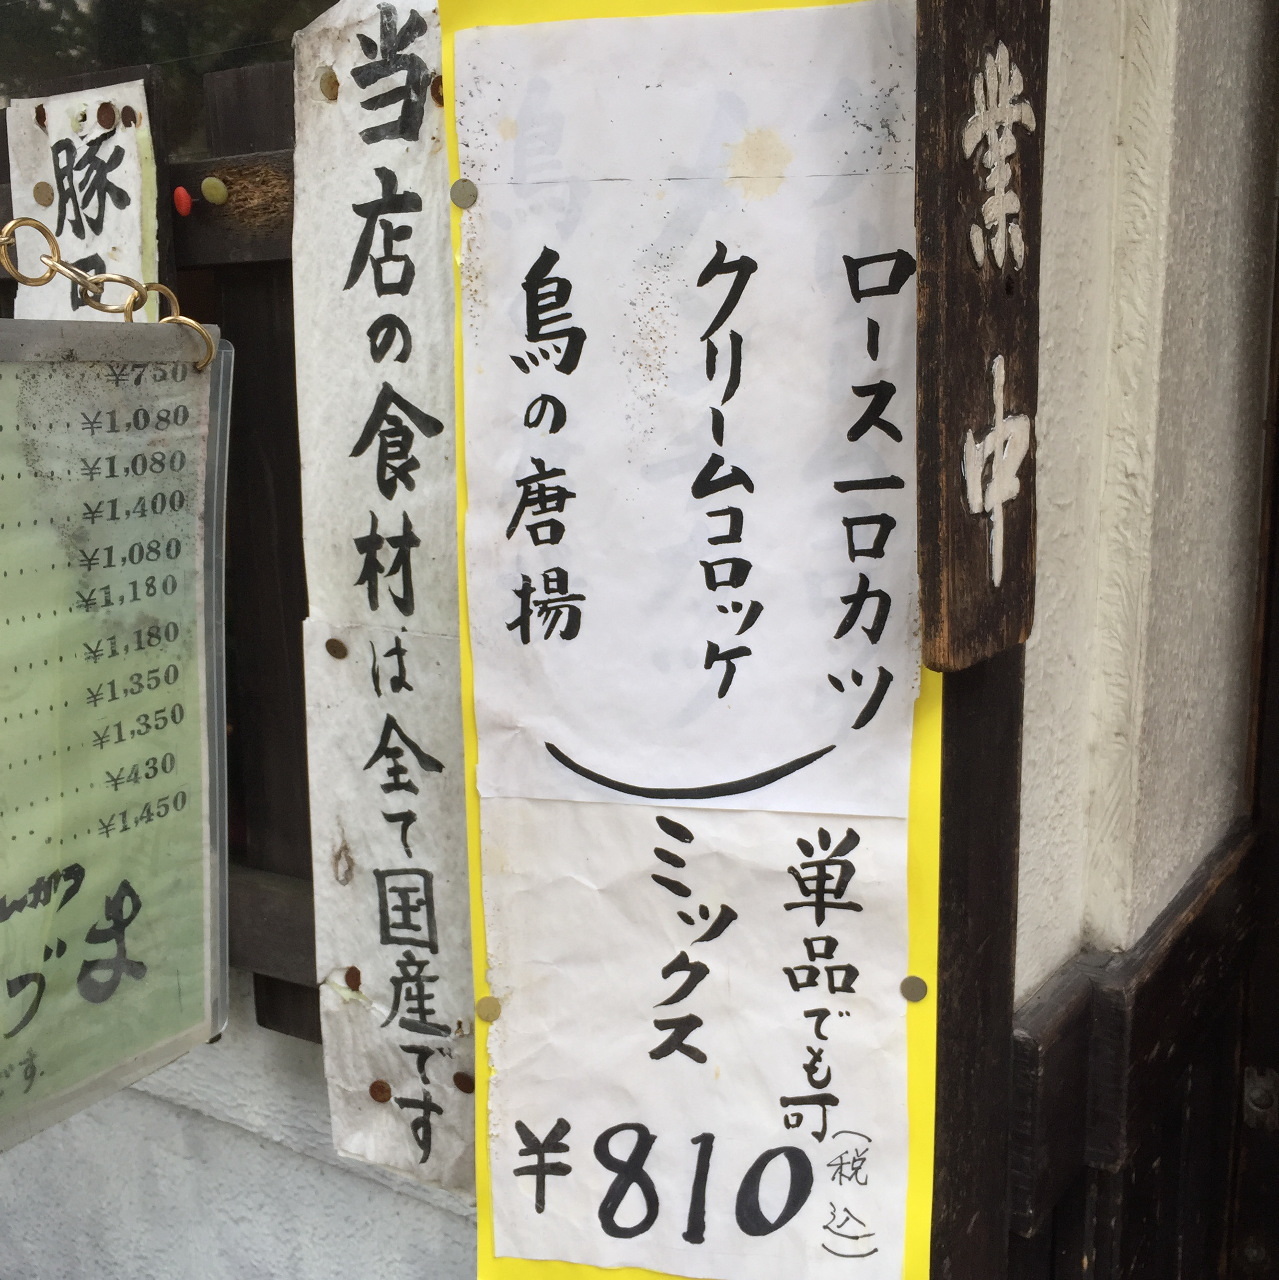 業中
ロース一口カツ
クリームコロッケ
鳥の唐揚
ミックス
単品でも可
(税込)
¥810
当店の食材は全て国産です
豚
¥750
¥1,080
¥1,080
¥1,400
¥1,080
¥1,180
¥1,180
¥1,350
¥1,350
¥430
¥1,450